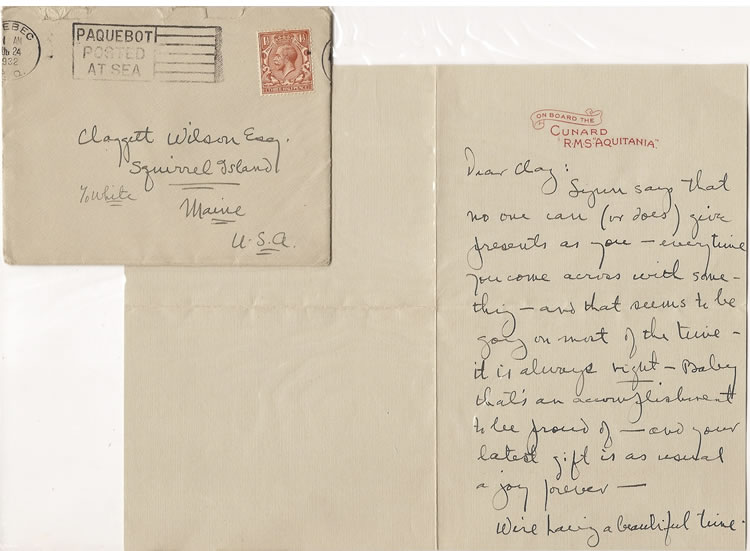 EBEC
AM
24
1932
PAQUEBOT
POSTED
AT SEA
Claggett Wilson Esq.
Squirrel Island
c/o White
Maine
U.S.A.
ON BOARD THE
CUNARD
"R.M.S "AQUITANIA"
Dear Clag:
Lynn says that
no one can (or does) give
presents as you — everytime
you come across with some-
thing — and that seems to be
going on most of the time —
it is always right — Baby
that's an accomplishment
to be proud of — and your
latest gift is as usual
a joy forever —
We're having a beautiful time.